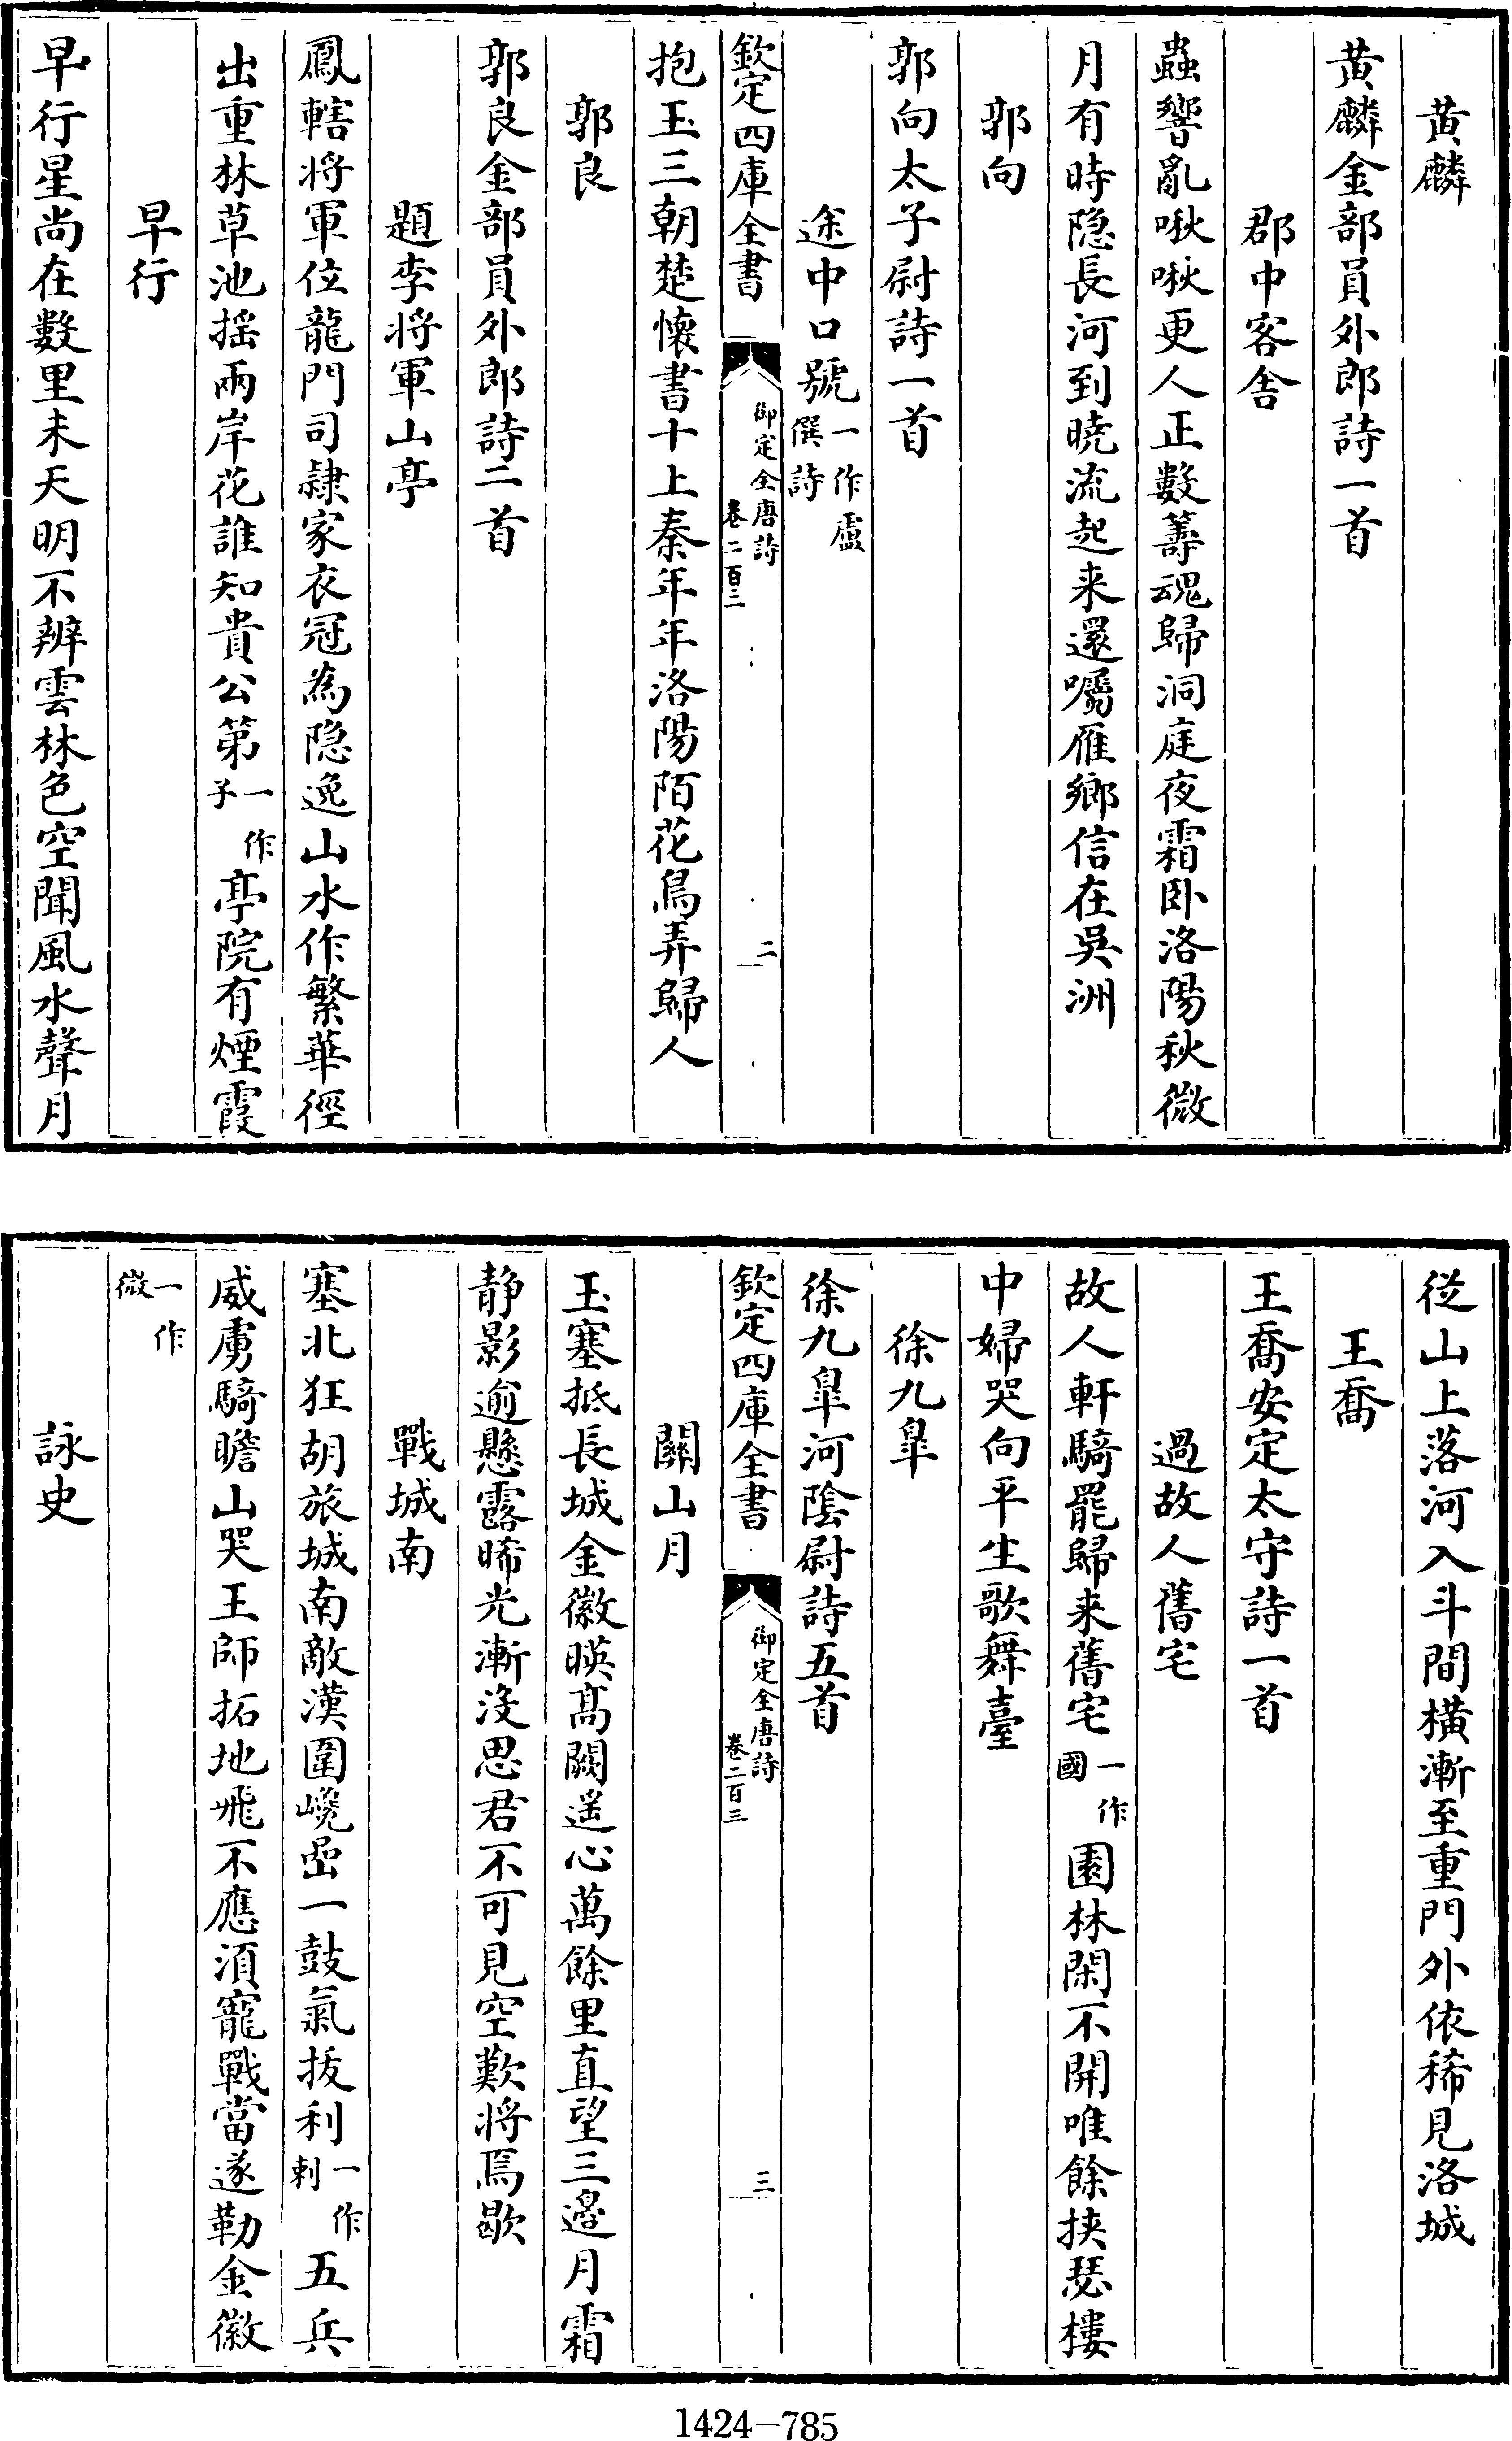 黄麟
黄麟金部員外郎詩一首
郡中客舍
蟲響亂啾啾更人正數籌魂歸洞庭夜霜卧洛陽秋微
月有時隐長河到曉流起来還囑雁鄉信在吳洲
郭向
郭向太子尉詩一首
途中口號一作盧僎詩
欽定四庫全書
御定全唐詩
卷二百三
二
抱玉三朝楚懷書十上秦年年洛陽陌花鳥弄歸人
郭良
郭良金部員外郎詩二首
題李将軍山亭
鳳轄将軍位龍門司隷家衣冠為隐逸山水作繁華徑
出重林草池摇兩岸花誰知貴公第一作子亭院有煙霞
早行
早行星尚在數里未天明不辨雲林色空聞風水聲月
從山上落河入斗間横漸至重門外依稀見洛城
王喬
王喬安定太守詩一首
過故人舊宅
故人軒騎罷歸来舊宅一作國園林閑不開唯餘挟瑟樓
中婦哭向平生歌舞臺
徐九臯
徐九臯河陰尉詩五首
欽定四庫全書
御定全唐詩
卷二百三
三
關山月
玉塞抵長城金徽暎髙闕遥心萬餘里直望三邉月霜
静影逾懸露晞光漸没思君不可見空歎将焉歇
戰城南
塞北狂胡旅城南敵漢圍巉嵒一鼓氣拔利一作剌五兵
威虜騎瞻山哭王師拓地飛不應須寵戰當遂勒金徽
一作微
詠史
1424-785